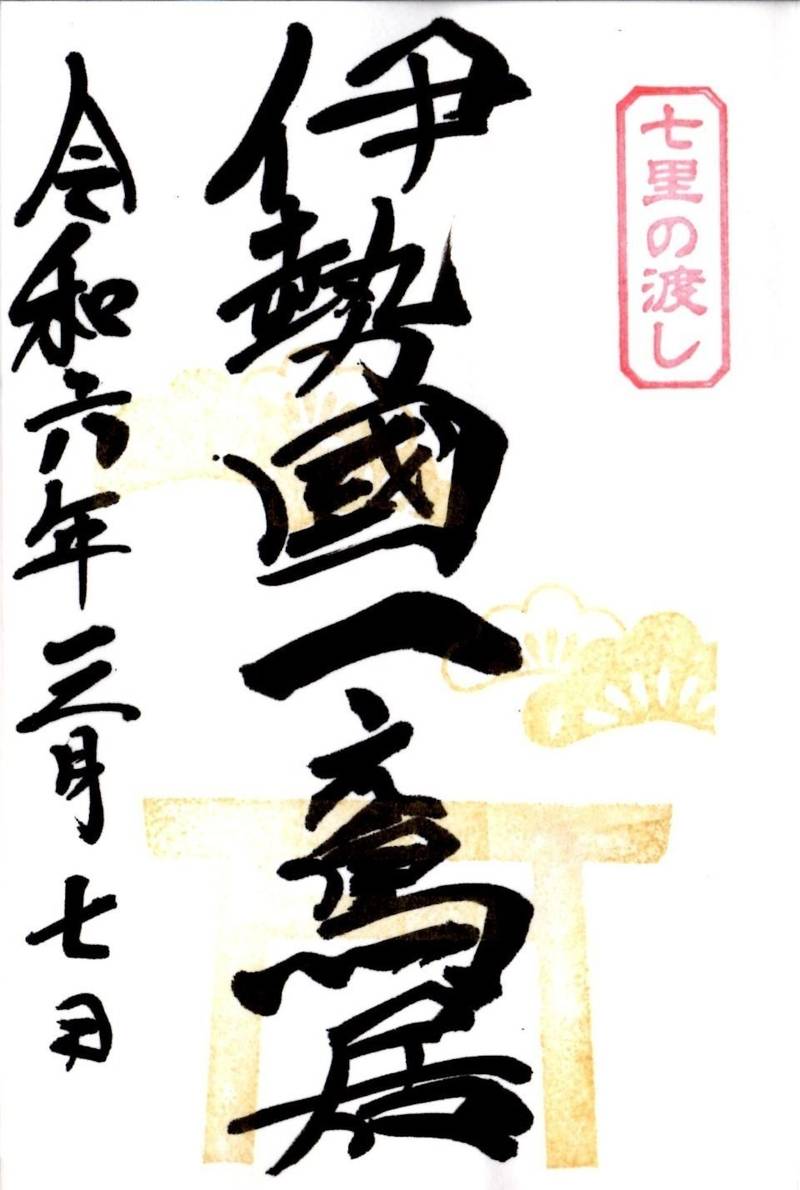 七里の渡し
伊勢國一鳥居
令和六年三月七日